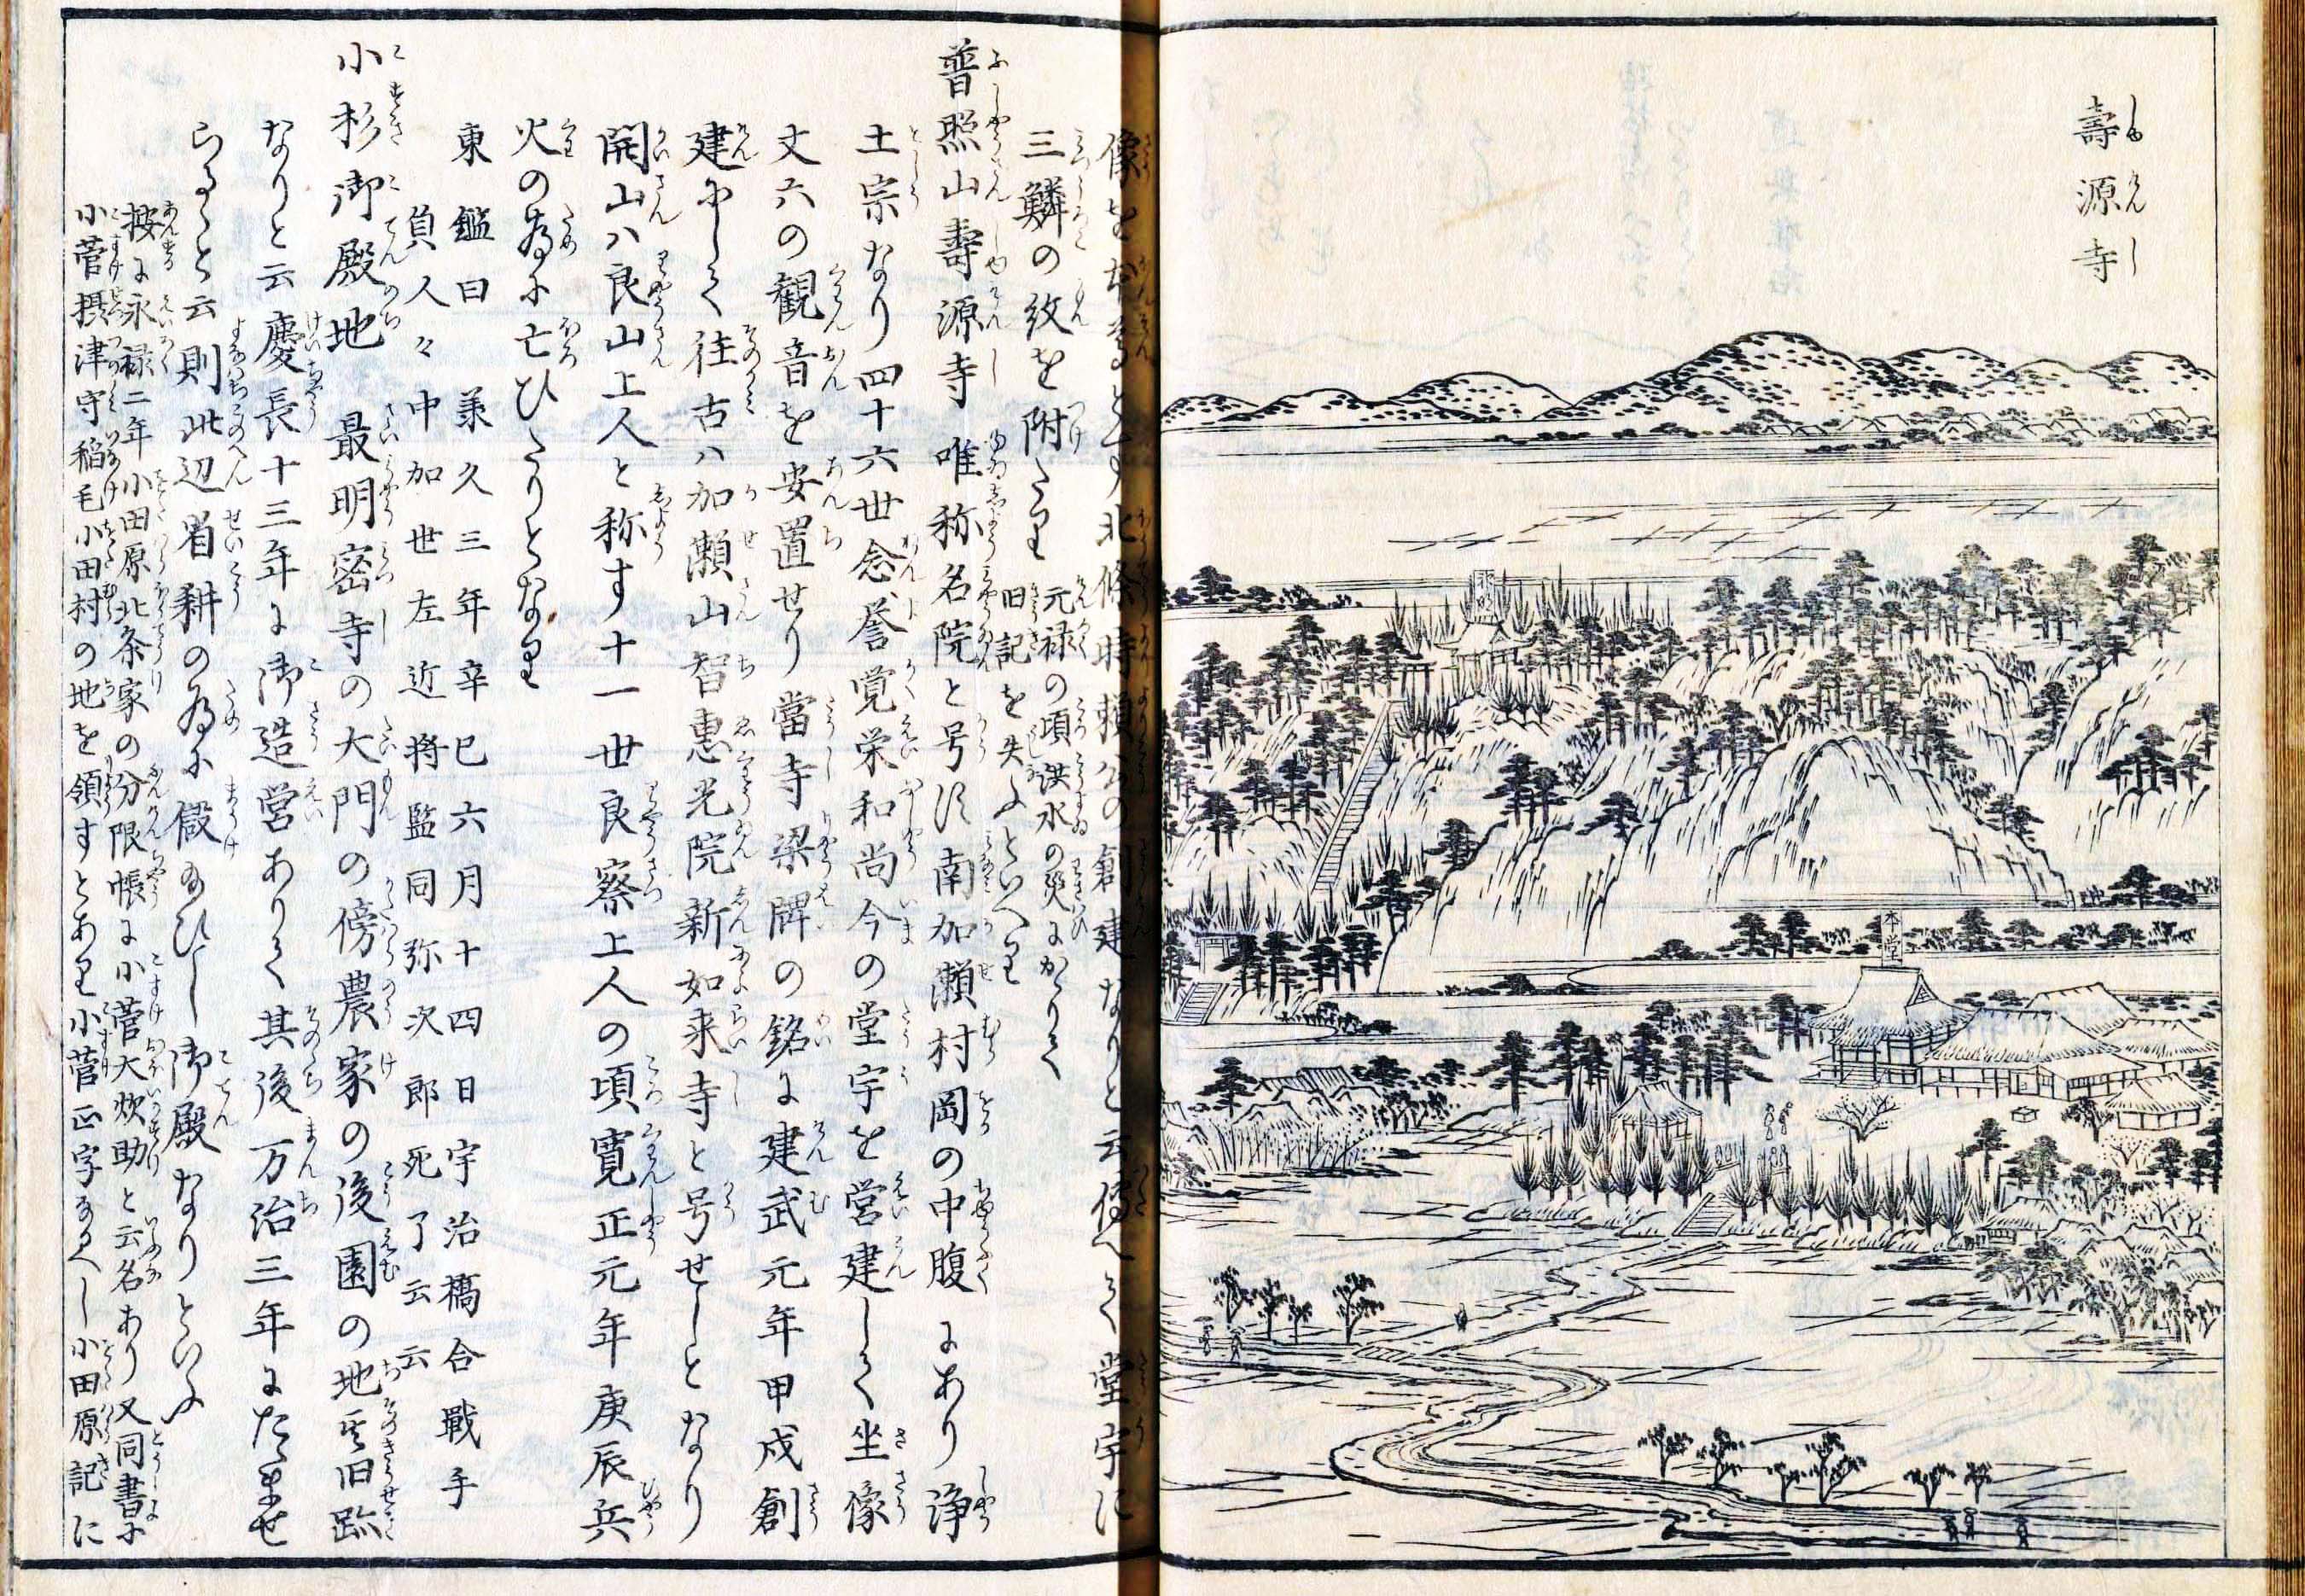 壽源寺
本堂
像を本尊とす北條時頼公の創建なりと云傳へて堂宇に
三鱗の紋を附たり
元禄の頃洪水の災にかゝりて
旧記を失ふといへり
普照山壽源寺 唯称名院と号す南加瀬村岡の中腹にあり浄
土宗なり四十六世念誉覚栄和尚今の堂宇を営建して坐像
丈六の観音を安置せり當寺梁牌の銘に建武元年甲戌創
建にして往古ハ加瀬山智惠光院新如来寺と号せしとなり
開山ハ良山上人と称す十一世良察上人の頃寛正元年庚辰兵
火の為に亡ひたりとなり
東鑑曰 承久三年辛巳六月十四日宇治橋合戰手
負人々中加世左近将監同弥次郎死了云云
小杉御殿地 最明密寺の大門の傍農家の後園の地其旧跡
なりと云慶長十三年に御造営ありて其後万治三年にたゝませ
らるゝと云則此辺省耕の為に設玉ひし御殿なりといふ
按に永禄二年小田原北条家の分限帳に小菅大炊助と云名あり又同書に
小菅摂津守稲毛小田村の地を領すとあり小菅正字なるへし小田原記に